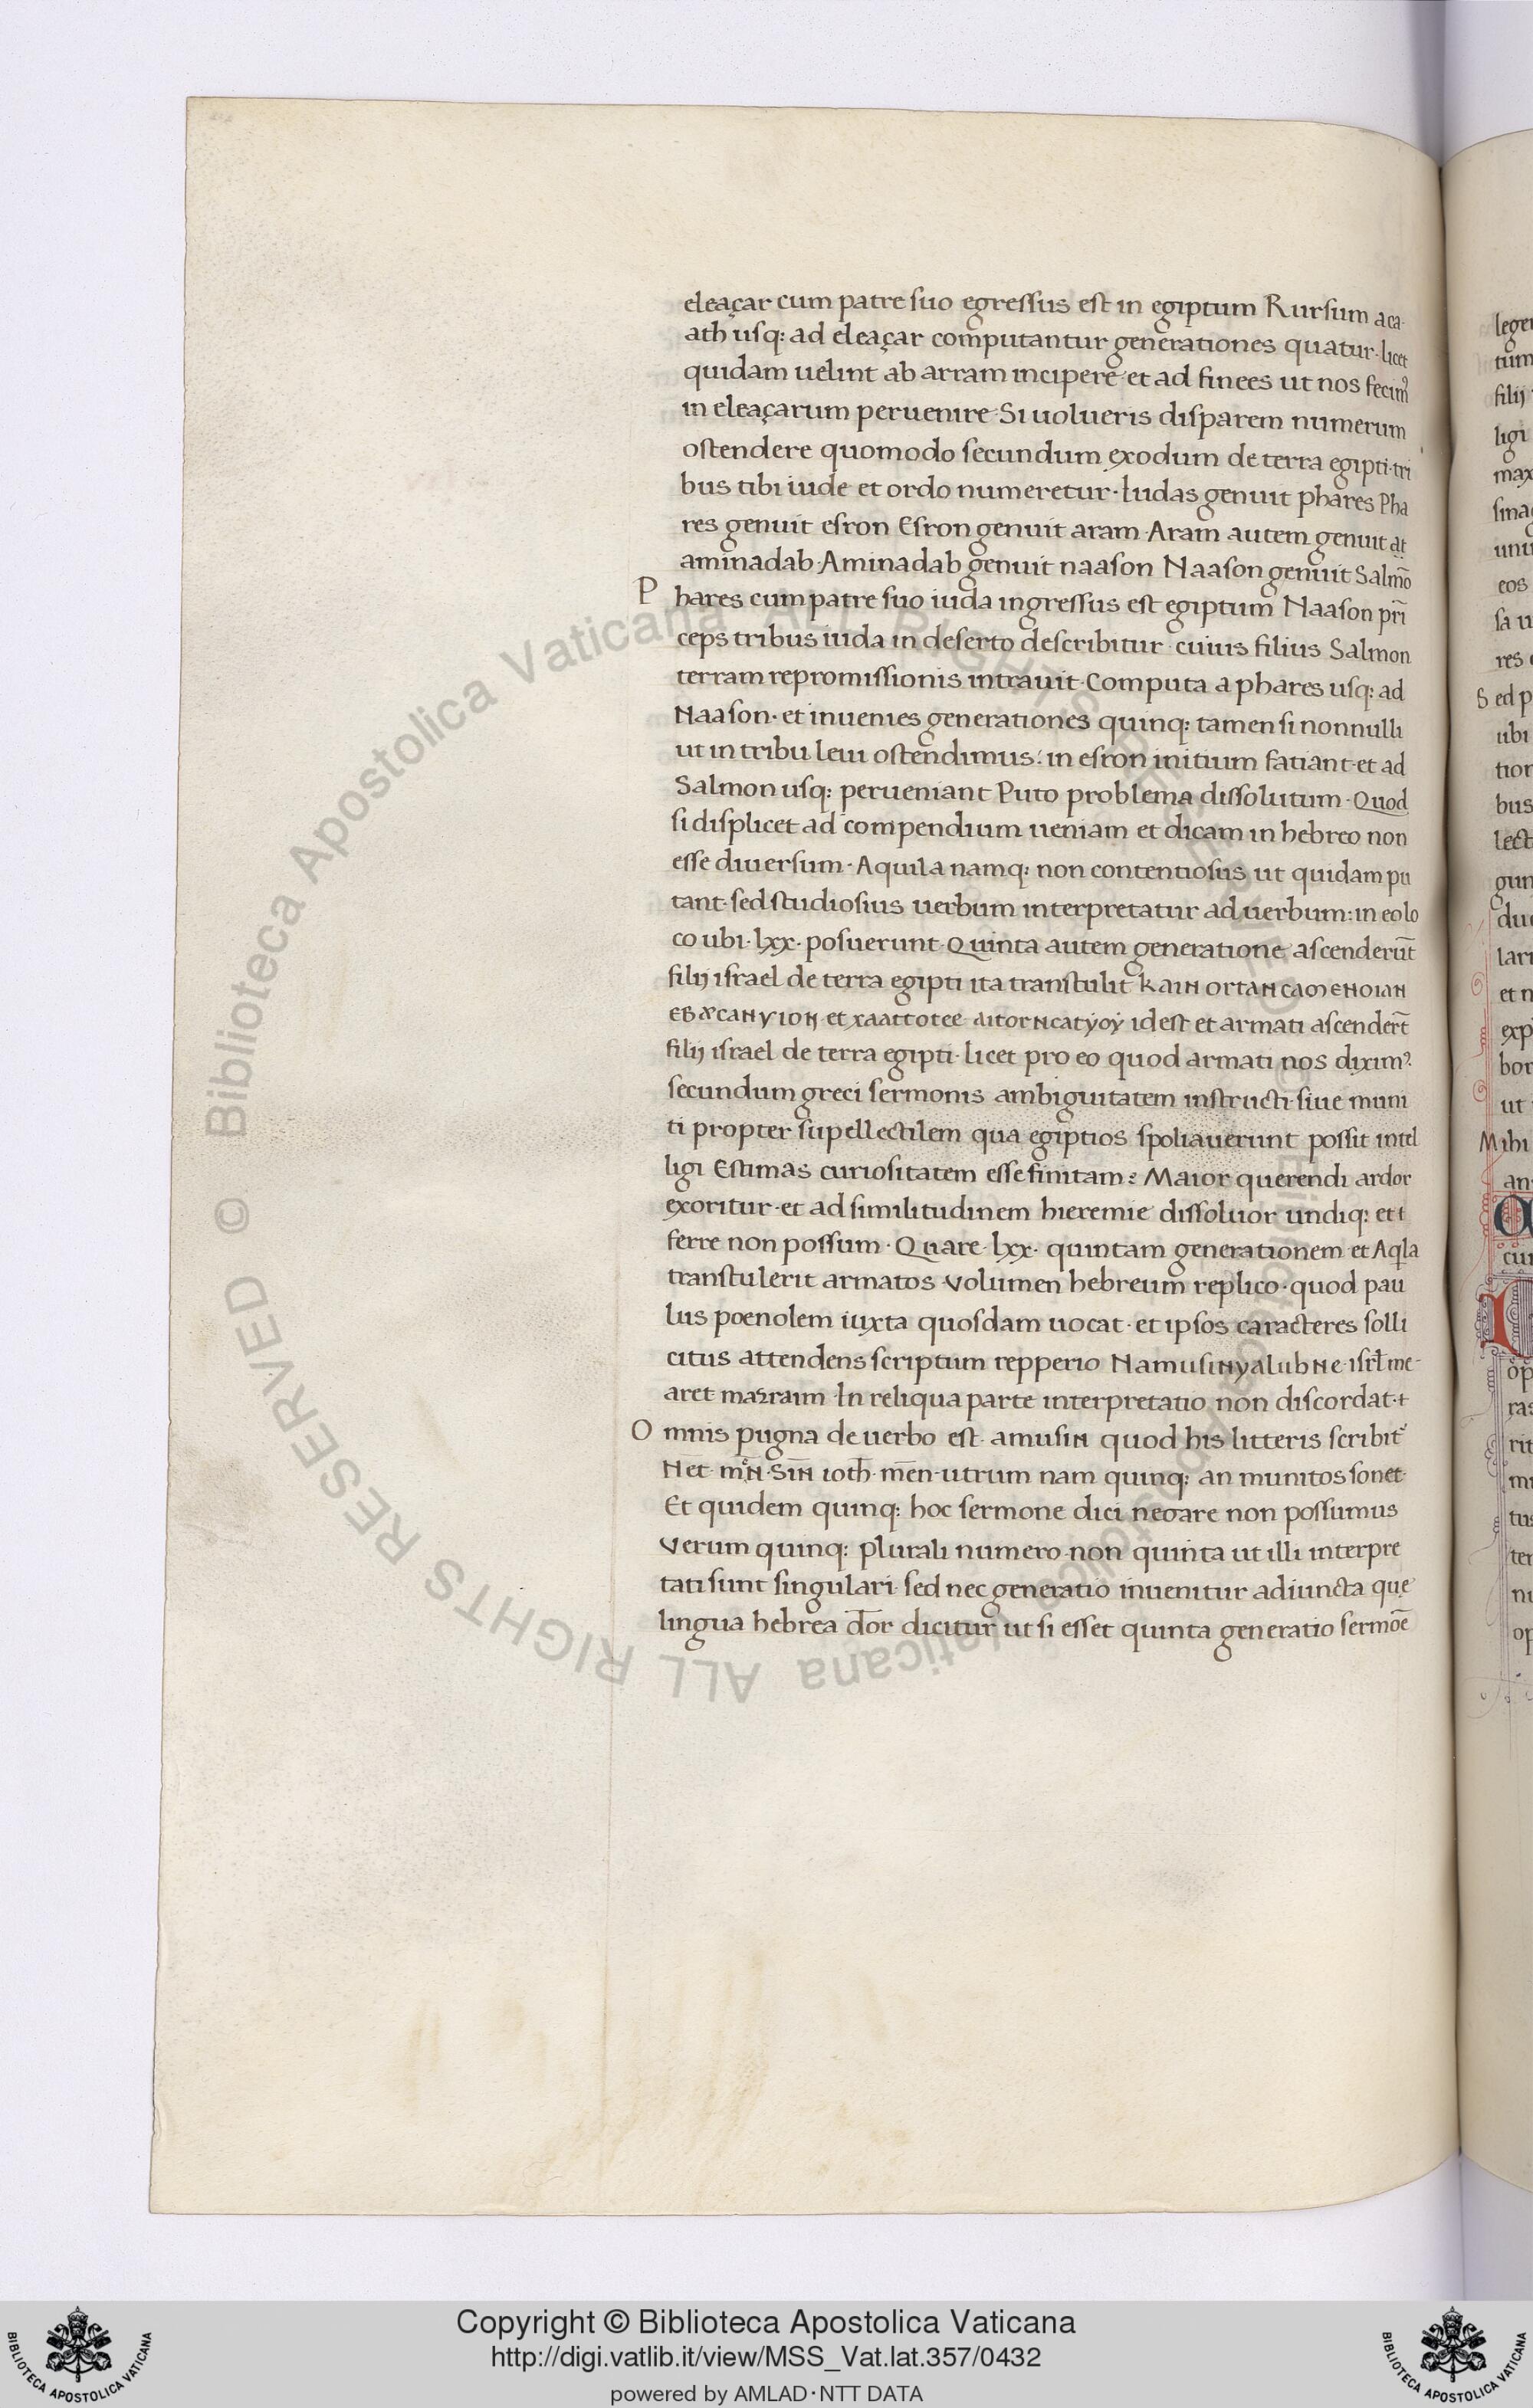 eleaçar cum patre suo egressus est in egiptum Rursum aca·
ath usq: ad eleaçar computantur generationes quatur· licet
quidam uelint ab arram incipere et ad finees ut nos fecimꝰ
in eleaçarum peruenire· Si uolueris disparem numerum
ostendere quomodo secundum exodum de terra egipti· tri
bus tibi iude et ordo numeretur· Iudas genuit phares Pha
res genuit esron Esron genuit aram· Aram autem genuit
aminadab· Aminadab genuit naason Naason genuit Salmō
Phares cum patre suo iuda ingressus est egiptum Naason prī
ceps tribus iuda in deserto describitur· cuius filius Salmon
terram repromissionis intrauit· Computa a phares usq: ad
Naason· et inuenies generationes quinq: tamen si nonnulli
ut in tribu leui ostendimus: in esron initium fatiant· et ad
Salmon usq: perueniant Puto problema dissolutum· Quod
si displicet ad compendium ueniam et dicam in hebreo non
esse diuersum· Aquila namq: non contentiosus ut quidam pu
tant· sed studiosius uerbum interpretatur ad uerbum: in eo lo
co ubi· lxx· posuerunt· Quinta autem generatione ascenderūt
filij israel de terra egipti ita transtulit
id est et armati ascenderūt
filij israel de terra egipti· licet pro eo quod armati nos diximꝰ·
secundum greci sermonis ambiguitatem instructi· siue muni
ti propter supellectilem qua egiptios spoliauerunt possit intel
ligi Estimas curiositatem esse finitam? Maior querendi ardor
exoritur· et ad similitudinem hieremie dissoluor undiq: et
ferre non possum· Quare· lxx· quintam generationem et Aqla
transtulerit armatos· Volumen hebreum replico· quod pau
lus poenolem iuxta quosdam uocat· et ipsos caracteres solli
citus attendens scriptum repperio Namusinyalubne· isrł me-
aret mazraim· In reliqua parte interpretatio non discordat·
Omnis pugna de uerbo est· amusin quod his litteris scribit᷑
Het· mēn· Sīn ioth̄· mēn· utrum nam quinq: an munitos sonet·
Et quidem quinq: hoc sermone dici negare non possumus
Verum quinq: plurali numero· non quinta ut illi interpre
tati sunt singulari· sed nec generatio inuenitur adiuncta que
lingua hebrea dōr dicitur ut si esset quinta generatio sermōe
Copyright © Biblioteca Apostolica Vaticana
http://digi.vatlib.it/view/MSS_Vat.lat.357/0432
powered by AMLAD·NTT DATA